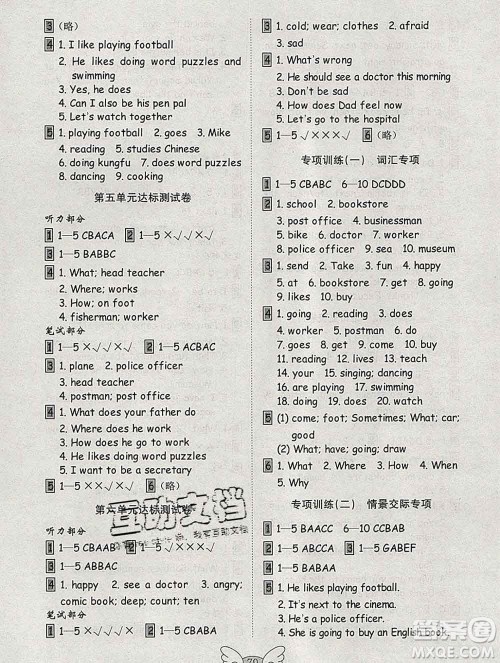 3 (略)
4 1. I like playing football
2. He likes doing word puzzles and
swimming
3. Yes, he does
4. Can I also be his pen pal
5. Let's watch together
5 1. playing football 2. goes 3. Mike
4. reading 5. studies Chinese
6. doing kungfu 7. does word puzzles
8. dancing 9. cooking
第五单元达标测试卷
听力部分
1 1—5 CBACA 2 1—5 ×√√×√
3 1—5 BABBC
4 1. What; head teacher
2. Where; works
3. How; on foot
4. fisherman; worker
笔试部分
1 1—5 ×√√×√ 2 1—5 ACBAC
3 1. plane 2. police officer
3. head teacher
4. postman; post office
4 1. What does your father do
2. Where does he work
3. How does he go to work
4. He likes doing word puzzles
5. I want to be a secretary
5 1—5 √××√× 6 (略)
第六单元达标测试卷
听力部分
1 1—5 CBAAB
3 1—5 BABCA
4 1. happy 2. see a doctor 3. angry;
comic book; deep; count; ten
笔试部分
1 1—5 √×√√× 2 1—5 CBABA
3 1. cold; wear; clothes 2. afraid
3. sad
4 1. What's wrong
2. He should see a doctor this morning
3. Don't be sad
4. How does Dad feel now
5. Let's go to the hospital
5 1—5 √×××√ 6 (略)
专项训练(一) 词汇专项
1 1—5 CBABC 6—10 DCDDD
2 1. school 2. bookstore
3. post office 4. businessman
5. bike 6. doctor 7.worker
8. police officer 9. sea 10. museum
3 1. send 2. Take 3. fun 4. happy
5. at 6. bookstore 7. get 8. With
9. likes 10. buy
4 1. goes 2. worker 3. postman
4. works 5. walk 6. do 7. goes
8. get 9. go 10. buy 11. reading
12. making 13. lives 14. teach
14. your 15. singing; dancing
16. are playing 17. swimming
18. doing 19. does 20. watch
5 (1) come; foot; Sometimes; What; Go;
can
(2) What; have; going; draw
6 1. What 2. Where 3. How 4. When
5. Why
专项训练(二) 情景交际专项
1 1—5 BAACC 6—10 CCBAB
2 1—5 ABCCA 3 1—5 GABEF
4 1—5 BABBA
5 1. He likes playing football.
2. It's next to the cinema.
3. He's a police officer.
4. She is going to buy an English book.
互助文档
答案圈
MXQE.COM